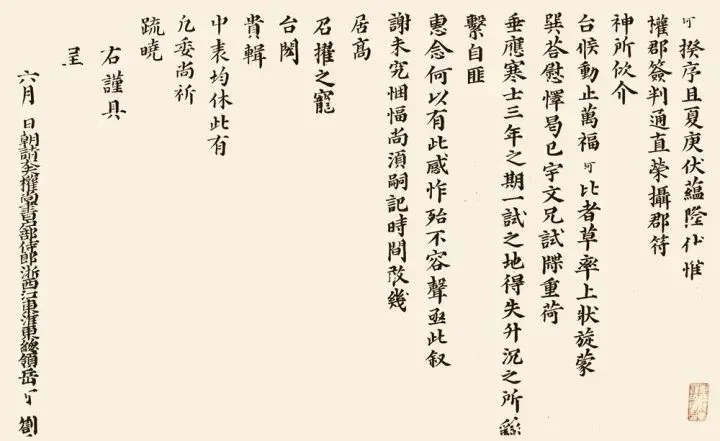 可揆序且夏庚伏蘊隆伏惟
權郡簽判通直榮攝郡符
神所佽介
台候動止萬福可比者草率上狀旋蒙
巽答慰懌曷已宇文兄試牒重荷
垂應寒士三年之期一試之地得失升沉之所繇
繫自匪
惠念何以有此感怍殆不容聲亟此叙
謝未究悃愊尚須嗣記時間改幾
居高
召擢之寵
台閎
貴輯
中表均休此有
凢委尚祈
疏曉
右謹具
呈
六月 日朝請大夫權尚書戶部侍郎浙西江東淮東總領岳可劄